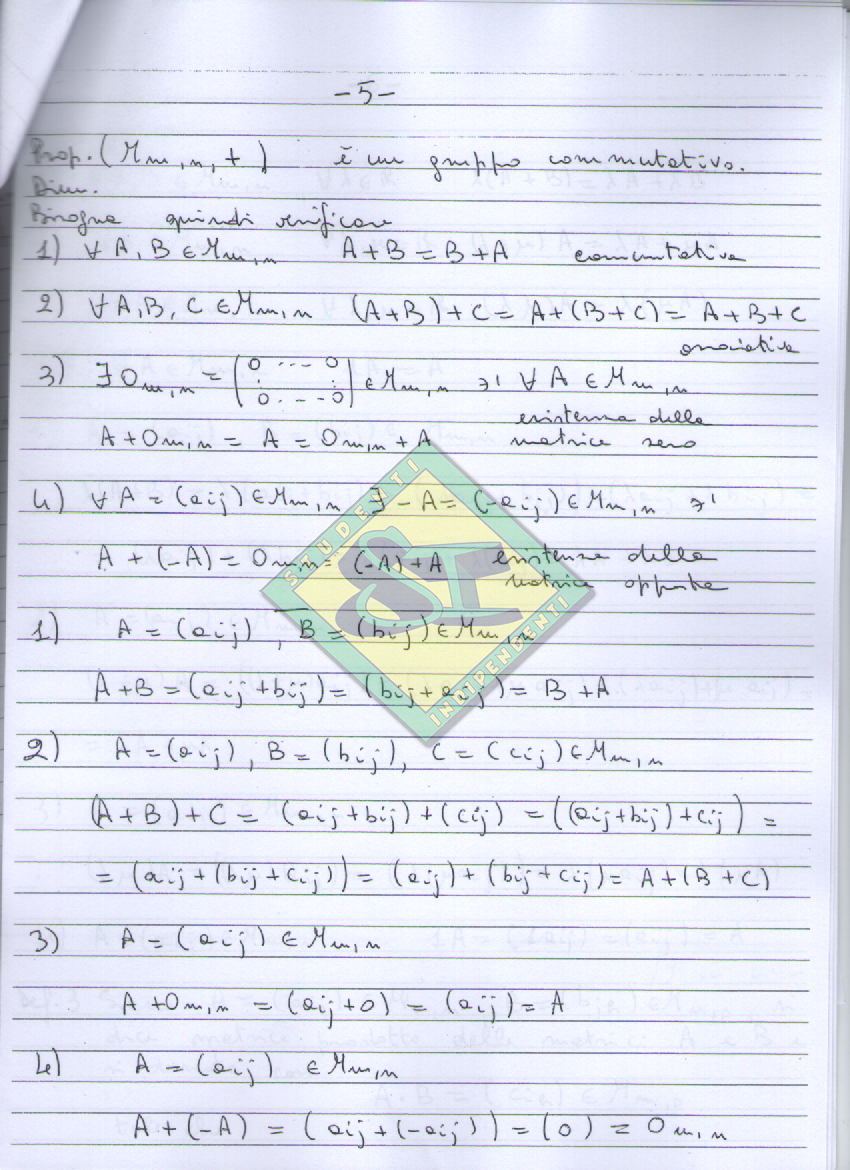 -5-
Prop. (Mm,n, +) è un gruppo commutativo.
Dim.
Bisogna quindi verificare
1) ∀ A, B ∈ Mm,n A+B = B+A commutativa
2) ∀ A, B, C ∈ Mm,n (A+B)+C = A+(B+C) = A+B+C
associativa
3) ∃ 0m,n = (0 ... 0 : : 0 ... 0) ∈ Mm,n ∋' ∀ A ∈ Mm,n
esistenza della
A + 0m,n = A = 0m,n + A matrice zero
4) ∀ A = (aij) ∈ Mm,n ∃ -A = (-aij) ∈ Mm,n ∋'
A + (-A) = 0m,n = (-A) + A esistenza della
matrice opposta
STUDENTI
SI
INDIPENDENTI
1) A = (aij), B = (bij) ∈ Mm,n
A+B = (aij + bij) = (bij + aij) = B + A
2) A = (aij), B = (bij), C = (cij) ∈ Mm,n
(A+B)+C = (aij + bij) + (cij) = ((aij+bij)+cij) =
= (aij + (bij + cij)) = (aij) + (bij + cij) = A+(B+C)
3) A = (aij) ∈ Mm,n
A + 0m,n = (aij + 0) = (aij) = A
4) A = (aij) ∈ Mm,n
A + (-A) = (aij + (-aij)) = (0) = 0m,n